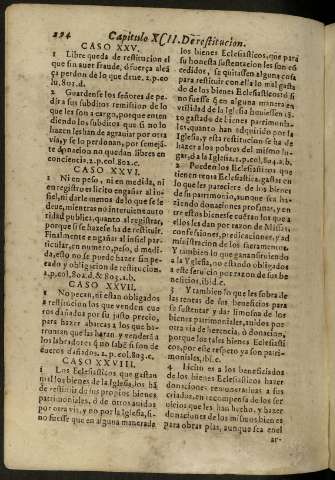 294 Capitulo XCII. De restitucion.
CASO XXV.
1 Libre queda de restitucion el
que sin auer fraude, ò fuerça alcã
ça perdon de lo que deue. 2.p.co
lu.802.d.
2 Guardense los señores de pe-
dir a sus subditos remission de lo
que les son a cargo, porque enten
diendo los subditos que si no lo
hazen les han de agrauiar por otra
via, y se lo perdonan, por semejã-
te perdon no quedan libres en
conciencia. 2.p.col.802.c.
CASO XXVI.
1 Ni en peso, ni en medida, ni
en registro es licito engañar al in-
fiel, ni darle menos de lo que se le
deue, mientras no interuiene auto
ridad publica, quanto al registrar,
porque si se haze se ha de restituir.
Finalmente engañar al infiel par-
ticular, en numero, peso, ò medi-
da, esto no se puede hazer sin pe-
cado y obligacion de restitucion.
2.p.col.802.d.& 803.a.b.
CASO XXVII.
1 No pecan, ni estan obligados
a restitucion los que venden cue
ros dañados por su justo precio,
para hazer abarcas a los que ba-
rruntan que las haran y venderã a
los labradores q̃ no sabẽ si son de
cueros dañados. 2.p.col.803.c.
CASO XXVIII.
1 Los Eclesiasticos que gastan
mal los bienes de la Iglesia, los hã
de restituir de sus propios bienes
patrimoniales, ò de otros auidos
por otra via, y no por la Iglesia, si-
no fuesse que en alguna manera de
los bienes Eclesiasticos, que para
su honesta sustentacion les son cõ
cedidos, se quitassen alguna cosa
para restituir con ella lo mal gasta
do de los bienes Eclesiasticos: ò si
no fuesse q̃ en alguna manera en
vtilidad de la Iglesia huuiessen
to gastado de bienes patrimonia-
les, quanto han adquirido por la
Iglesia, y esta restitucion se ha de
hazer a los pobres del mismo lu-
gar, ò a la Iglesia. 2.p.col.804.a.b.
2 Pueden los Eclesiasticos que
tienen rentas Eclesiasticas, gastar en
lo que les pareciere de los bienes
de su patrimonio, aunque sea ha-
ziendo donaciones profusas, y en-
tre estos bienes se cuentan los que a
ellos les dan por razon de Missas,
confessiones, predicaciones, y ad
ministracion de los sacramentos.
Y tambien lo que ganan siruiendo
a la Yglesia, no estando obligados
a este seruicio por razon de sus be
neficios, ibid.c.
3 Y tambien lo que les sobra de
las rentas de sus beneficios para
se sustentar y dar limosna de los
bienes patrimoniales, auidos por
otra via de herencia, ò donacion,
porque los tales bienes sustitui-
dos, por este respeto ya son patri-
moniales, ibi.c.
4 Licito es a los beneficiados
de los bienes Eclesiasticos hazer
donaciones remuneratiuas a sus
criados, en recompensa de los ser
uicios que les han hecho, y hazer
donaciones de los mismos bienes
para obras pias, aunque sea en el
ar-